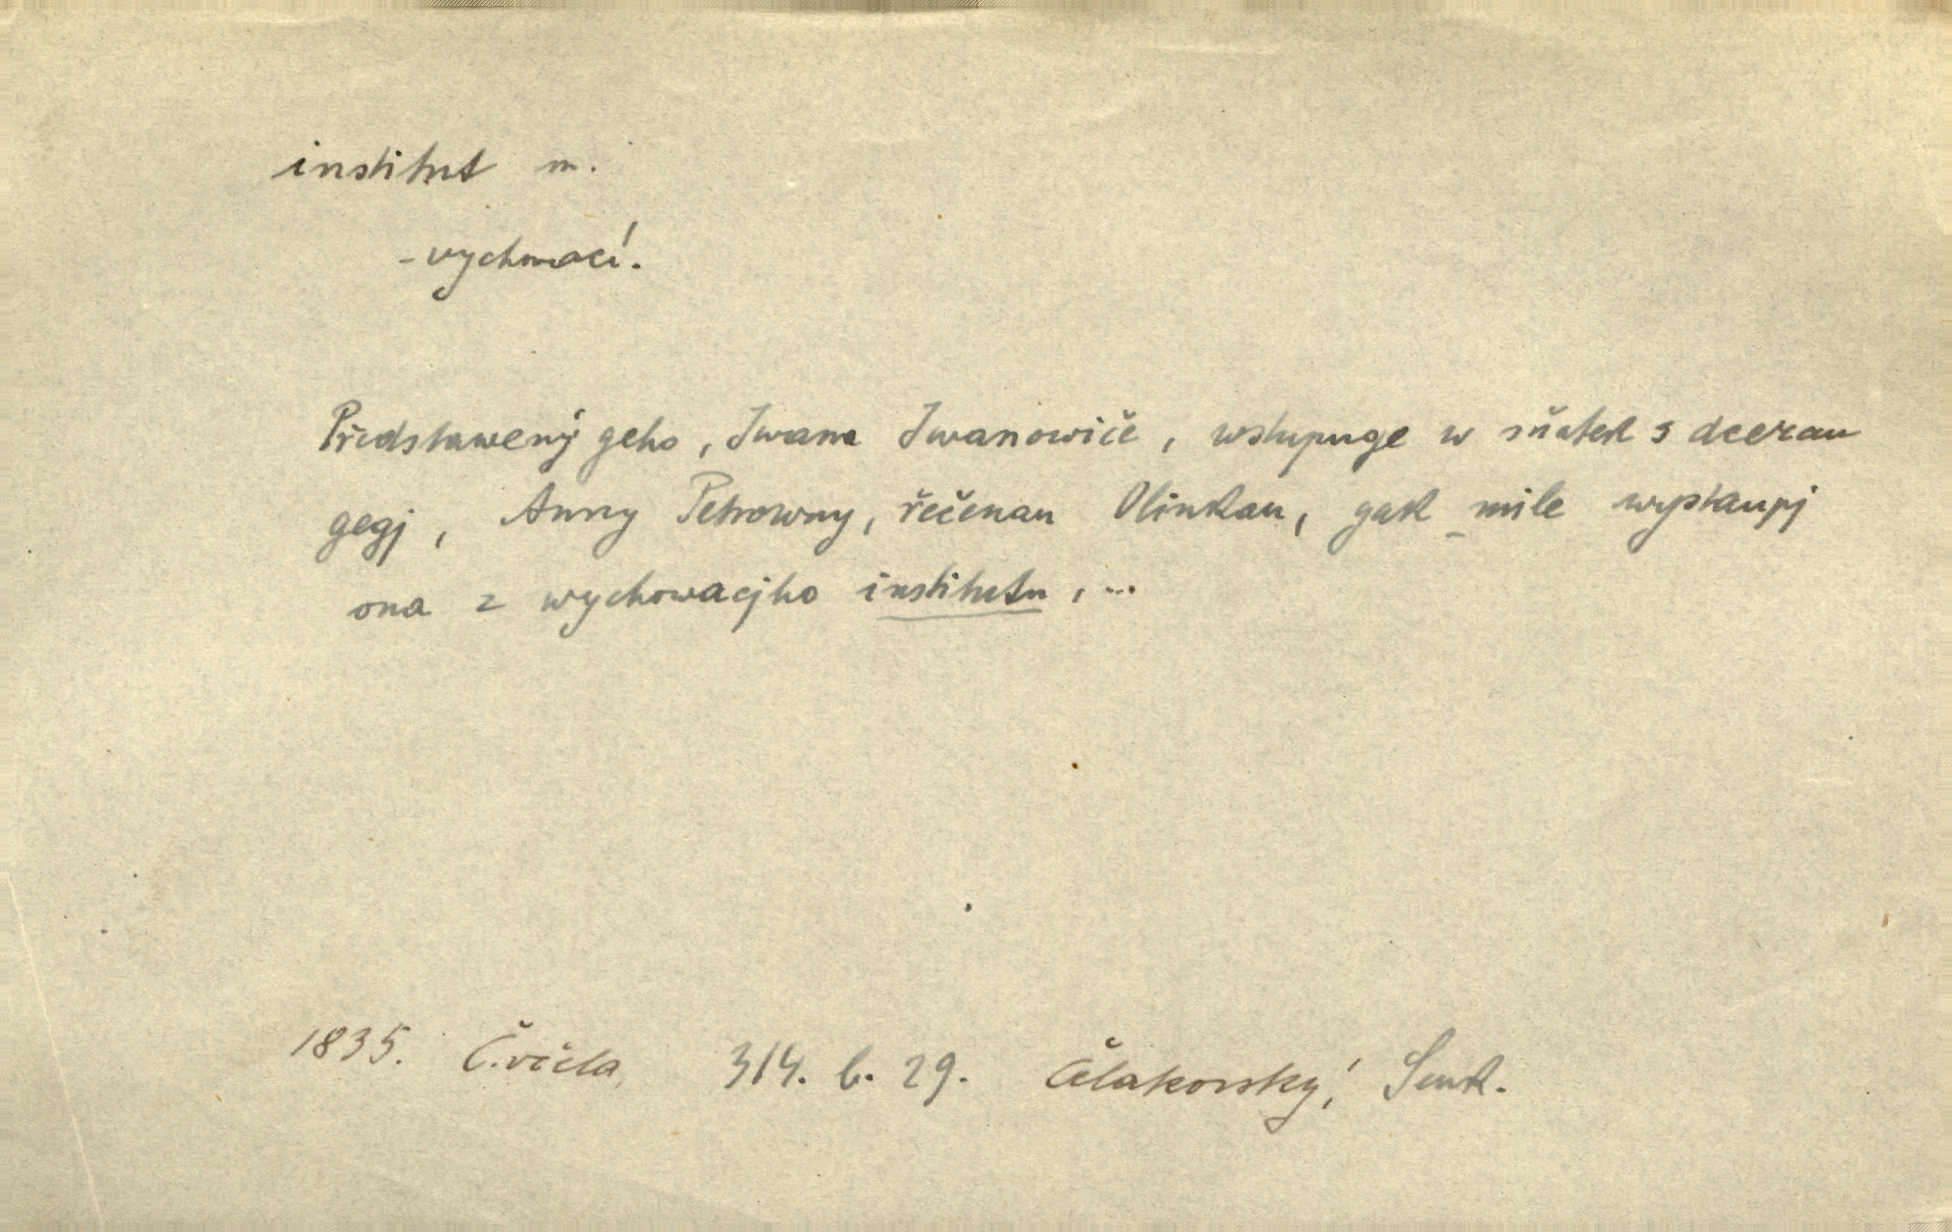 institut m.
- vychovací.
Předstawený geho, Iwana Iwanowiče, wstupuge w sňatek s dcerau
gegj, Anny Petrowny, řečenau Olinkau, gak mile wystaupj
ona z wychowacjho institutu, ...
1835. Č. včela, 314. b. 29. Čelakovský,